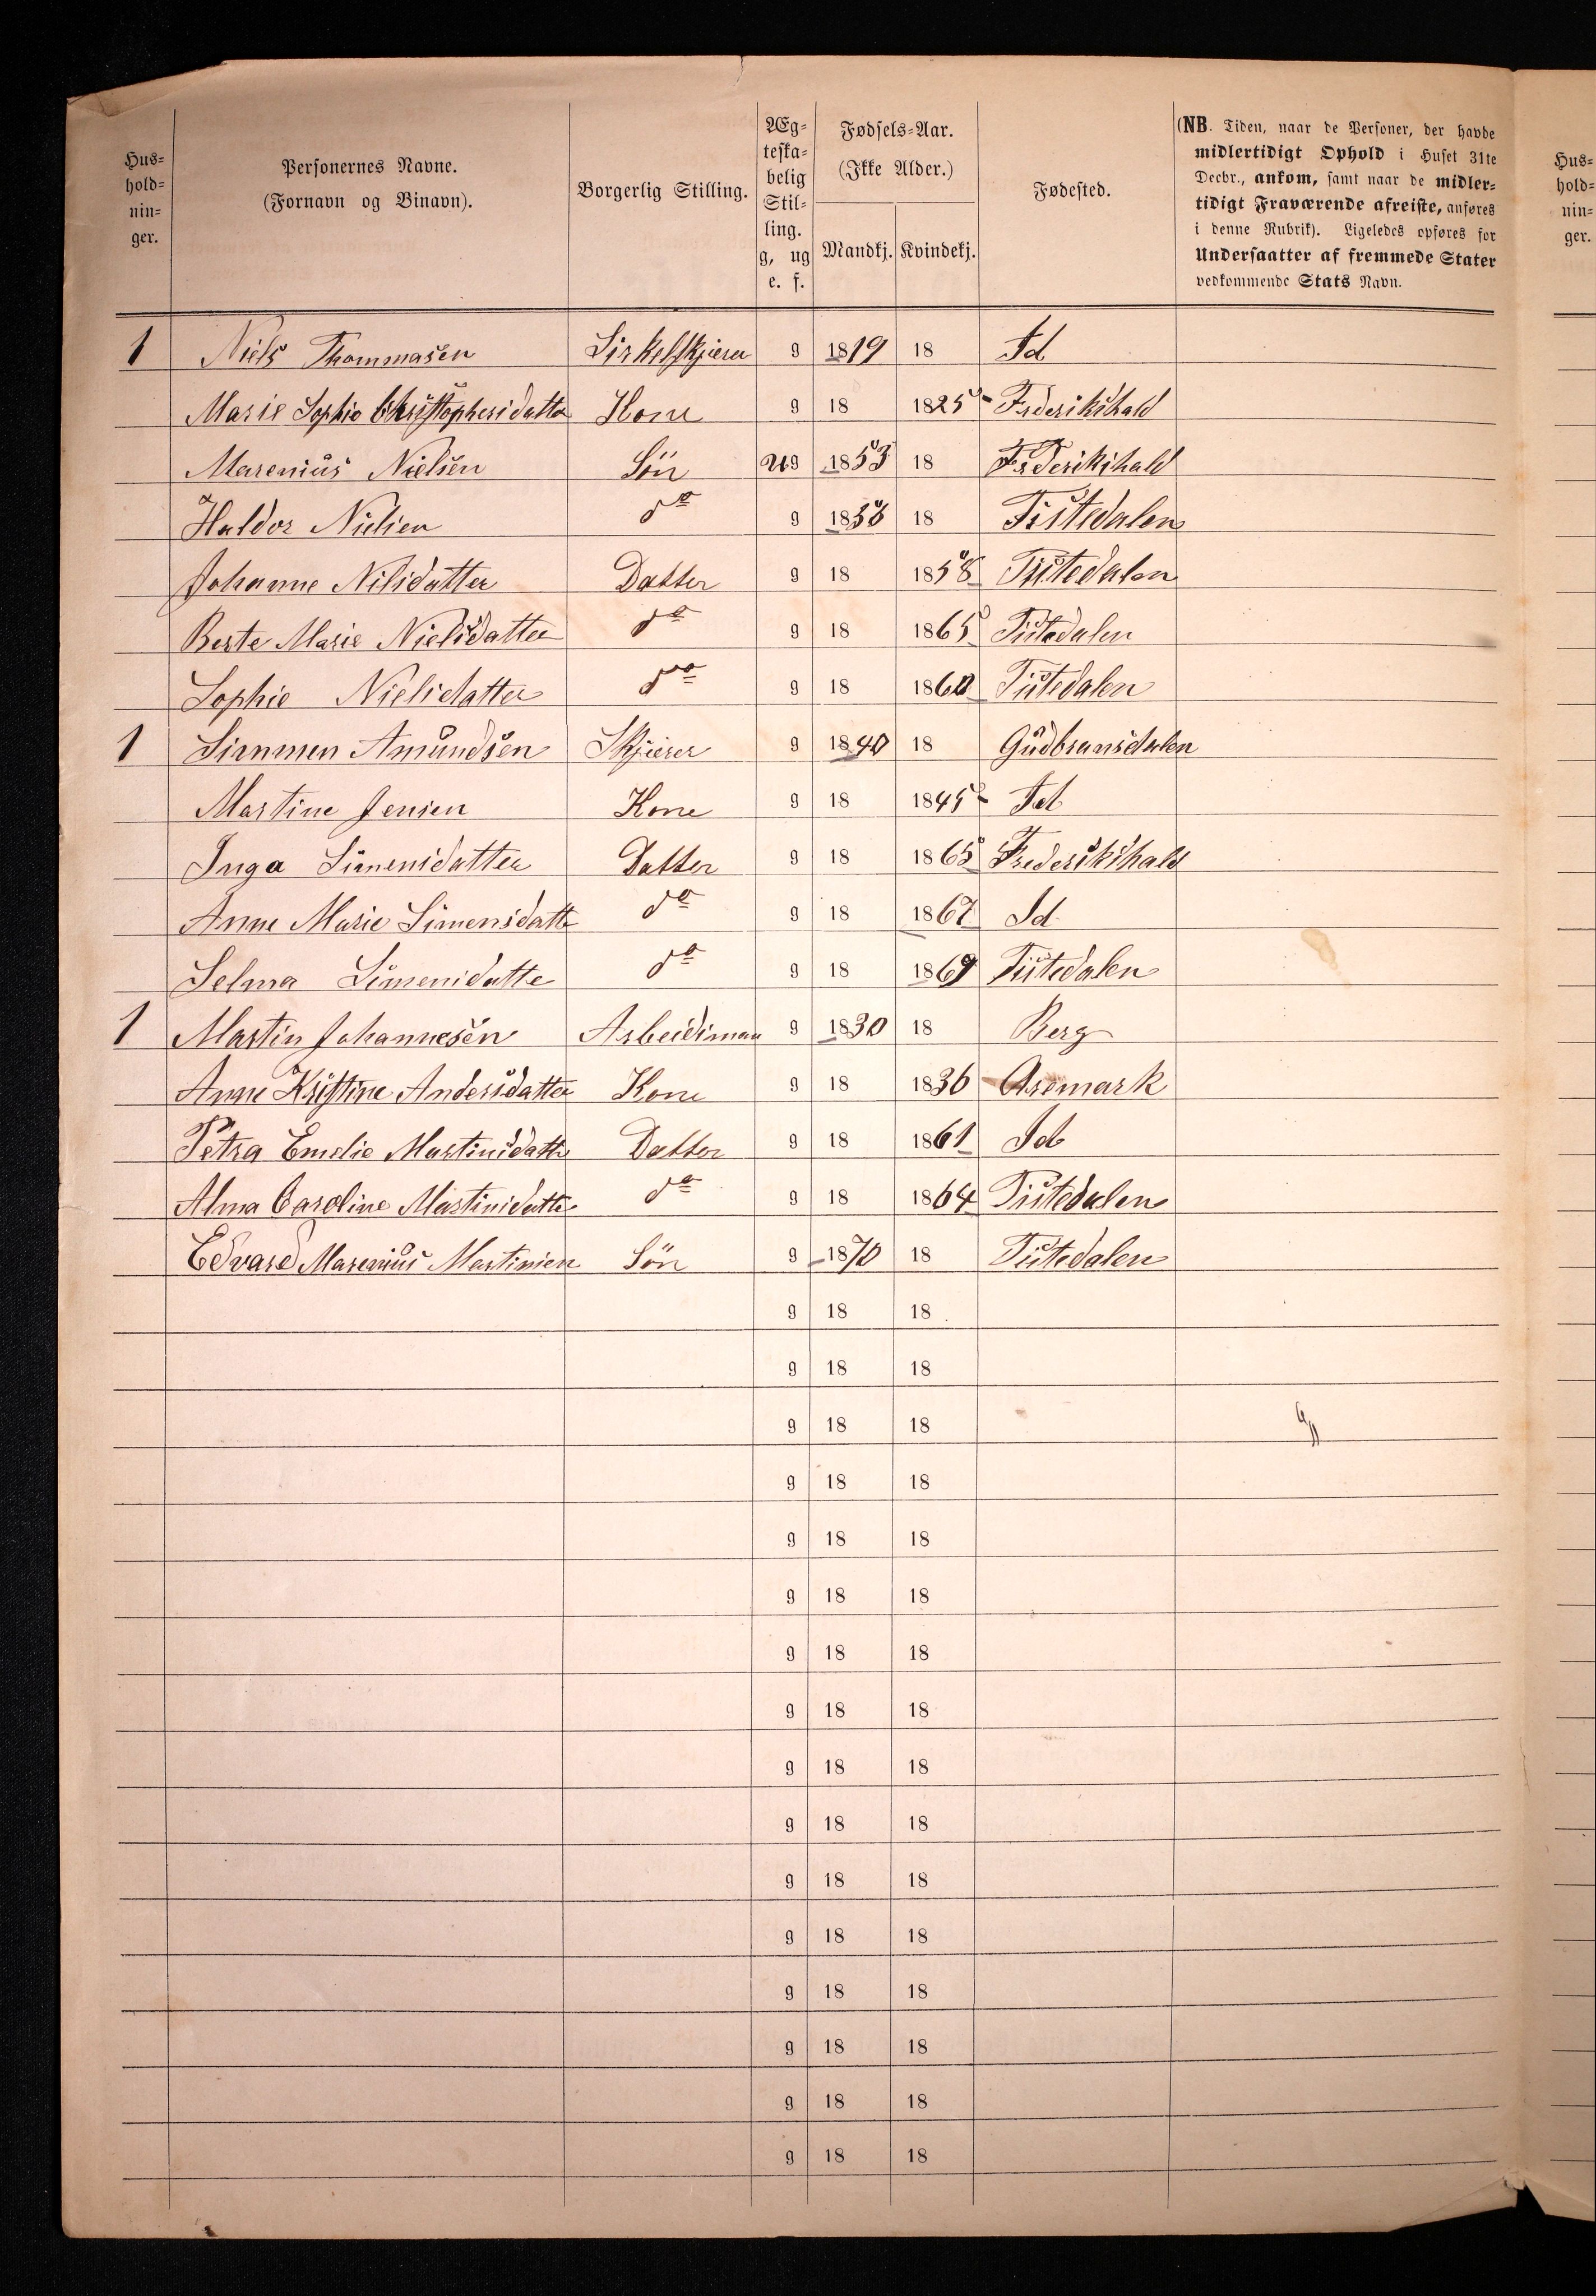 Hus-
hold-
nin-
ger.
Personernes Navne.
(Fornavn og Binavn).
Borgerlig Stilling.
Æg-
teska-
belig
Stil-
ling.
g, ug
e. f.
Fødsels-Aar.
(Ikke Alder.)
Mandkj. Kvindekj.
Fødested.
(NB. Tiden, naar de Personer, der havde
midlertidigt Ophold i Huset 31te
Decbr., ankom, samt naar de midler-
tidigt Fraværende afreiste, anføres
i denne Rubrik). Ligeledes opføres for
Undersaatter af fremmede Stater
vedkommende Stats Navn.
Hus-
hold-
nin-
ger.
1 Niels Thommasen Sirkelskjærer g 1819 18 Id
Marie Sophie Christophersdatter Kone g 18 1825 Frderikshald
Marenius Nielsen Søn ug 1853 18 Frderikshald
Haldor Nielsen do g 1856 18 Tistedalen
Johanne Nilsdatter Datter g 18 1858 Tistedalen
Berte Marie Nielsdatter do g 18 1865 Tistedalen
Sophie Nielsdatter do g 18 1860 Tistedalen
1 Simmen Amundsen Skjærer g 1840 18 Gudbransdalen
Martine Jensen Kone g 18 1845 Id
Inga Simensdatter Datter g 18 1865 Frederikshald
Anne Marie Simensdatte do g 18 1867 Id
Selma Simensdatte do g 18 1869 Tistedalen
1 Martin Johannesen Arbeidsman g 1830 18 Berg
Anne Kristine Andersdatter Kone g 18 1836 Aremark
Petra Emelie Martinsdatte Datter g 18 1861 Id
Alma Caroline Martinsdatte do g 18 1864 Tistedalen
Edvard Marenius Martinsen Søn g 1870 18 Tistedalen
g 18 18
g 18 18
g 18 18
g 18 18
g 18 18
g 18 18
g 18 18
g 18 18
g 18 18
g 18 18
g 18 18
g 18 18
g 18 18
g 18 18
g 18 18
g 18 18